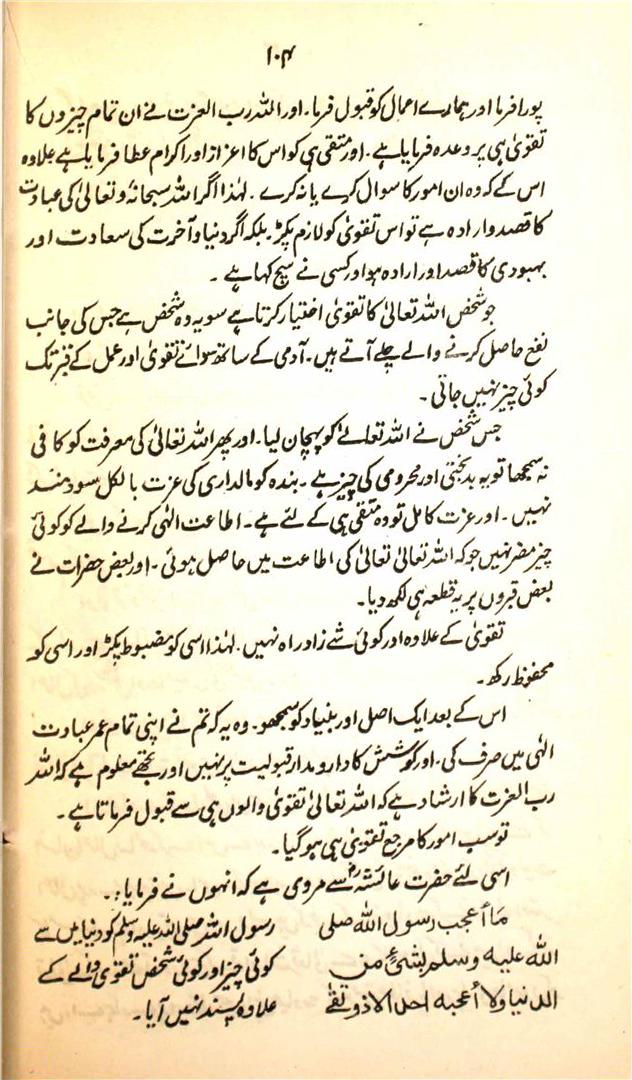 ۱۰۴
پورا فرما اور ہمارے اعمال کو قبول فرما۔ اور اللہ رب العزت نے ان تمام چیزوں کا
تقویٰ ہی پر وعدہ فرمایا ہے۔ اور متقی ہی کو اس کا اعزاز اور اکرام عطا فرمایا ہے علاوہ
اس کے کہ وہ ان امور کا سوال کرے یا نہ کرے۔ لہٰذا اگر اللہ سبحانہٗ و تعالیٰ کی عبادت
کا قصد و ارادہ ہے تو اس تقویٰ کو لازم پکڑ۔ بلکہ اگر دنیا و آخرت کی سعادت اور
بہبودی کا قصد اور ارادہ ہو اور کسی نے سچ کہا ہے ۔
جو شخص اللہ تعالیٰ کا تقویٰ اختیار کرتا ہے سو یہ وہ شخص ہے جس کی جانب
نفع حاصل کرنے والے چلے آتے ہیں۔ آدمی کے ساتھ سوائے تقویٰ اور عمل کے قبر تک
کوئی چیز نہیں جاتی ۔
جس شخص نے اللہ تعالےٰ کو پہچان لیا۔ اور پھر اللہ تعالیٰ کی معرفت کو کافی
نہ سمجھا تو یہ بدبختی اور محرومی کی چیز ہے ۔ بندہ کو مالداری کی عزت بالکل سود مند
نہیں ۔ اور عزت کامل تو وہ متقی ہی کے لئے ہے۔ اطاعت الٰہی کرنے والے کو کوئی
چیز مضر نہیں جو کہ اللہ تعالیٰ تعالیٰ کی اطاعت میں حاصل ہوئی ۔ اور بعض حضرات نے
بعض قبروں پر یہ قطعہ ہی لکھ دیا۔
تقویٰ کے علاوہ اور کوئی شے زاد راہ نہیں ۔ لہٰذا اسی کو مضبوط پکڑ اور اسی کو
محفوظ رکھ ۔
اس کے بعد ایک اصل اور بنیاد کو سمجھو۔ وہ یہ کہ تم نے اپنی تمام عمر عبادت
الٰہی میں صرف کی۔ اور کوشش کا دارومدار قبولیت پر نہیں اور تجھے معلوم ہے کہ اللہ
رب العزت کا ارشاد ہے کہ اللہ تعالیٰ تقویٰ والوں ہی سے قبول فرماتا ہے ۔
تو سب امور کا مرجع تقویٰ ہی ہو گیا۔
اسی لئے حضرت عائشہؓ سے مروی ہے کہ انہوں نے فرمایا:۔
مَا أعجب رسول الله صلى
الله عليه وسلم بشئ من
الدنيا ولا أعجبه احد الا ذو تقى
رسول اللہ صلی اللہ علیہ وسلم کو دنیا میں سے
کوئی چیز اور کوئی شخص تقویٰ والے کے
علاوہ پسند نہیں آیا۔